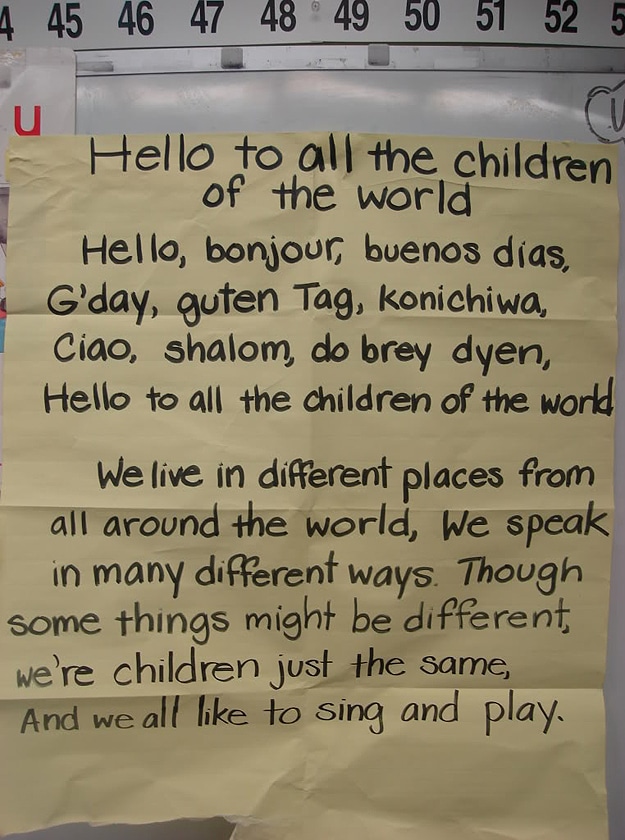 4 45 46 47 48 49 50 51 52 5
u
Hello to all the children
of the world
Hello, bonjour, buenos días,
G'day, guten Tag, konichiwa,
Ciao, shalom, do brey dyen,
Hello to all the children of the world
We live in different places from
all around the world, We speak
in many different ways. Though
some things might be different,
we're children just the same,
And we all like to sing and play.